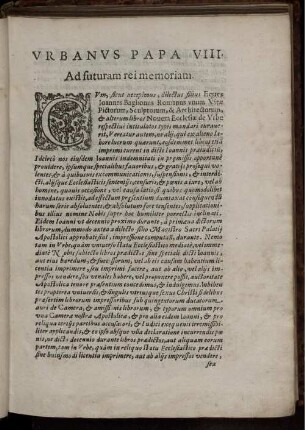 VRBANVS PAPA VIII.
Ad futuram rei memoriam.
CVm, sicut accepimus, dilectus filius Eques
Ioannes Baglionus Romanus unum Vitæ
Pictorum, Sculptorum, & Architectorum,
& alterum libros Nouem Ecclesiæ de Vrbe
respectiue intitulatos typis mandari curauerit,
Vereatur autem, ne alij, qui ex alieno labore
lucrum quærunt, eosdem libros
imprimi curent in dicti Ioannis præiudicium,
Ideò nos eiusdem Ioannis indemnitati in præmissis opportunè
prouidere, ipsumque specialibus fauoribus, & gratijs prosequi volentes,
& à quibusuis excommunicationis, suspensionis, & interdicti,
alijsque Ecclesiasticis sententijs, censuris, & pœnis à iure, vel ab
homine, quauis occasione, vel causa latis, si quibus quomodolibet
innodatus existit, ad effectum præsentium dumtaxat consequendum
harum serie absoluentes, & absolutum fore censentes, supplicationibus
illius nomine Nobis super hoc humiliter porrectis inclinati,
Eidem Ioanni vt decennio proximo durante, à primæua dictorum
librorum, dummodo antea à dilecto filio Magistro Sacri Palatij
Apostolici approbati sint, impressione computandi, durante, Nemo
tam in Vrbe, quàm vniuerso statu Ecclesiastico mediatè, vel immediatè
Nobis subiecto libros prædictos sine speciali dicti Ioannis,
aut eius hæredum, & successorum, vel ab eis causam habentium licentia
imprimere, aut imprimi facere, aut ab alio, vel alijs
impressos vendere, aut venales habere, vel proponere possit, auctoritate
Apostolica tenore præsentium concedimus, & indulgemus. Inhibentes
propterea vniuersis, & singulis vtriusque sexus Christi fidelibus
præsertim librorum impressoribus sub quingentorum ducatorum
auri de Camera, & amissionis librorum, & typorum omnium
pro vna Cameræ nostræ Apostolicæ, & pro alia eidem Ioanni, & pro
reliqua tertijs partibus accusatori, & Iudici exequenti irremissibiliter
applicandis, & eo ipso absque vlla declaratione incurrendis pœnis,
ne dicto decennio durante libros prædictos, aut aliquam eorum
partem, tam in Vrbe, quàm in reliquo statu Ecclesiastico prædicti
sine huiusmodi licentia imprimere, aut ab alijs impressos vendere,